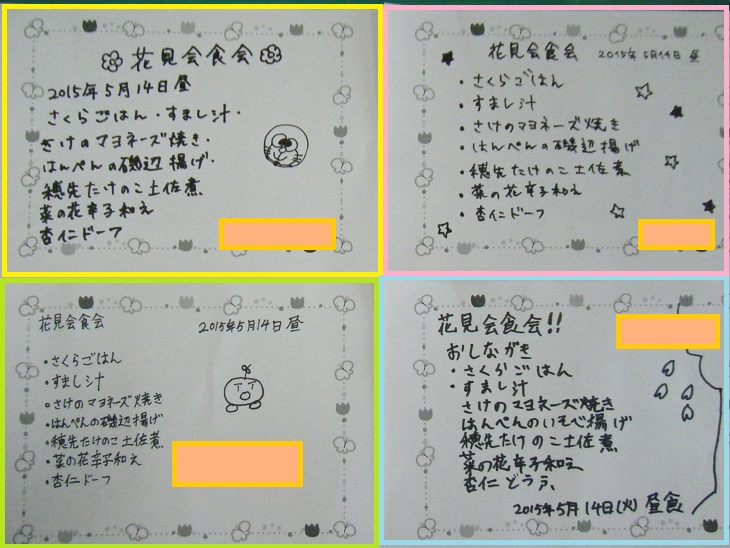 花見会食会
2015年5月14日昼
さくらごはん・すまし汁・
さけのマヨネーズ焼き・
はんぺんの磯辺揚げ・
穂先たけのこ土佐煮
菜の花辛子和え
杏仁ドーフ
花見会食会 2015年5月14日 昼
・さくらごはん
・すまし汁
・さけのマヨネーズ焼き
・はんぺんの磯辺揚げ
・穂先たけのこ土佐煮
・菜の花辛子和え
・杏仁ドーフ
花見会食会 2015年5月14日昼
・さくらごはん
・すまし汁
・さけのマヨネーズ焼き
・はんぺんの磯辺揚げ
・穂先たけのこ土佐煮
・菜の花辛子和え
・杏仁ドーフ
花見会食会!!
おしながき
・さくらごはん
・すまし汁
さけのマヨネーズ焼き
はんぺんのいそべ揚げ
穂先たけのこ土佐煮
菜の花辛子和え
杏仁どうふ
2015年5月14日(火) 昼食